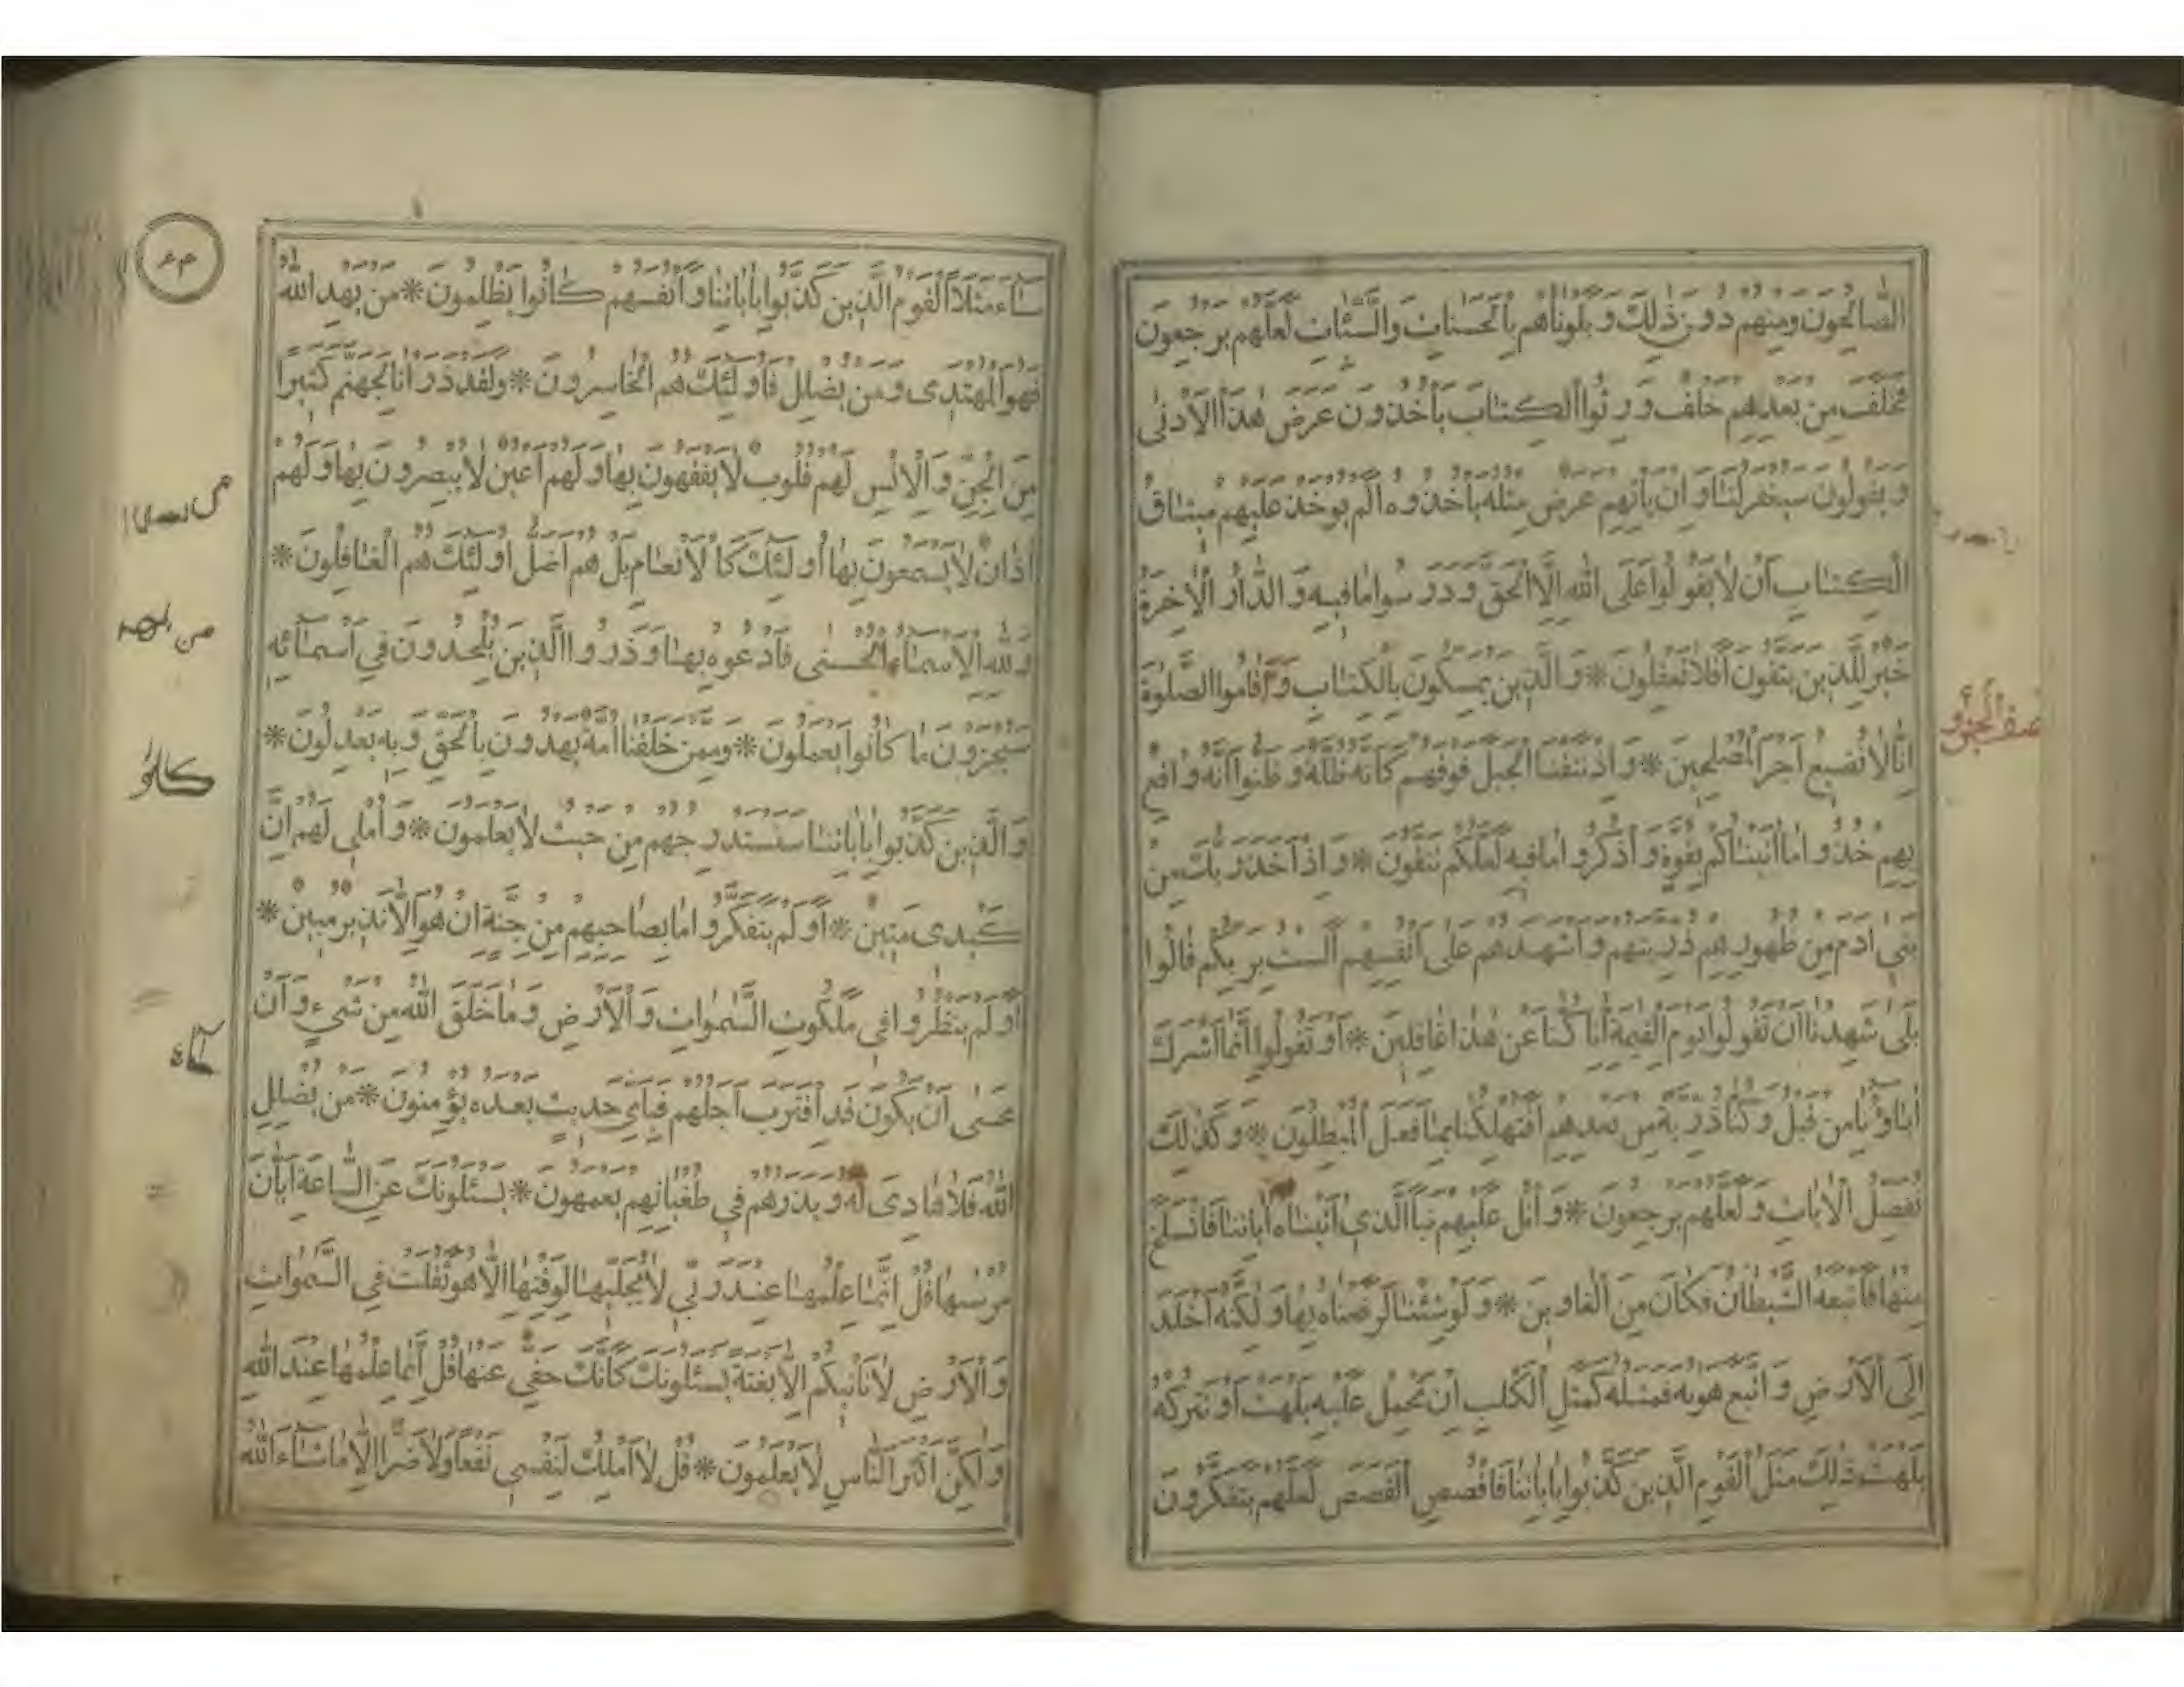 الصَّالِحُونَ وَمِنْهُمْ دُونَ ذٰلِكَ وَبَلَوْنَاهُمْ بِالْحَسَنَاتِ وَالسَّيِّئَاتِ لَعَلَّهُمْ يَرْجِعُونَ
فَخَلَفَ مِنْ بَعْدِهِمْ خَلْفٌ وَرِثُوا الْكِتَابَ يَأْخُذُونَ عَرَضَ هٰذَا الْاَدْنٰى
وَيَقُولُونَ سَيُغْفَرُ لَنَا وَاِنْ يَأْتِهِمْ عَرَضٌ مِثْلُهُ يَأْخُذُوهُ اَلَمْ يُؤْخَذْ عَلَيْهِمْ مِيثَاقُ
الْكِتَابِ اَنْ لَا يَقُولُوا عَلَى اللّٰهِ اِلَّا الْحَقَّ وَدَرَسُوا مَا فِيهِ وَالدَّارُ الْاٰخِرَةُ
خَيْرٌ لِلَّذِينَ يَتَّقُونَ اَفَلَا تَعْقِلُونَ * وَالَّذِينَ يُمَسِّكُونَ بِالْكِتَابِ وَاَقَامُوا الصَّلٰوةَ
اِنَّا لَا نُضِيعُ اَجْرَ الْمُصْلِحِينَ * وَاِذْ نَتَقْنَا الْجَبَلَ فَوْقَهُمْ كَاَنَّهُ ظُلَّةٌ وَظَنُّوا اَنَّهُ وَاقِعٌ
بِهِمْ خُذُوا مَا اٰتَيْنَاكُمْ بِقُوَّةٍ وَاذْكُرُوا مَا فِيهِ لَعَلَّكُمْ تَتَّقُونَ * وَاِذْ اَخَذَ رَبُّكَ مِنْ
بَنِي اٰدَمَ مِنْ ظُهُورِهِمْ ذُرِّيَّتَهُمْ وَاَشْهَدَهُمْ عَلٰى اَنْفُسِهِمْ اَلَسْتُ بِرَبِّكُمْ قَالُوا
بَلٰى شَهِدْنَا اَنْ تَقُولُوا يَوْمَ الْقِيٰمَةِ اِنَّا كُنَّا عَنْ هٰذَا غَافِلِينَ * اَوْ تَقُولُوا اِنَّمَا اَشْرَكَ
اٰبَاؤُنَا مِنْ قَبْلُ وَكُنَّا ذُرِّيَّةً مِنْ بَعْدِهِمْ اَفَتُهْلِكُنَا بِمَا فَعَلَ الْمُبْطِلُونَ * وَكَذٰلِكَ
نُفَصِّلُ الْاٰيَاتِ وَلَعَلَّهُمْ يَرْجِعُونَ * وَاتْلُ عَلَيْهِمْ نَبَاَ الَّذِي اٰتَيْنَاهُ اٰيَاتِنَا فَانْسَلَخَ
مِنْهَا فَاَتْبَعَهُ الشَّيْطَانُ فَكَانَ مِنَ الْغَاوِينَ * وَلَوْ شِئْنَا لَرَفَعْنَاهُ بِهَا وَلٰكِنَّهُ اَخْلَدَ
اِلَى الْاَرْضِ وَاتَّبَعَ هَوٰيهُ فَمَثَلُهُ كَمَثَلِ الْكَلْبِ اِنْ تَحْمِلْ عَلَيْهِ يَلْهَثْ اَوْ تَتْرُكْهُ
يَلْهَثْ ذٰلِكَ مَثَلُ الْقَوْمِ الَّذِينَ كَذَّبُوا بِاٰيَاتِنَا فَاقْصُصِ الْقَصَصَ لَعَلَّهُمْ يَتَفَكَّرُونَ
سَاءَ مَثَلًا الْقَوْمُ الَّذِينَ كَذَّبُوا بِاٰيَاتِنَا وَاَنْفُسَهُمْ كَانُوا يَظْلِمُونَ * مَنْ يَهْدِ اللّٰهُ
فَهُوَ الْمُهْتَدِي وَمَنْ يُضْلِلْ فَاُولٰئِكَ هُمُ الْخَاسِرُونَ * وَلَقَدْ ذَرَاْنَا لِجَهَنَّمَ كَثِيرًا
مِنَ الْجِنِّ وَالْاِنْسِ لَهُمْ قُلُوبٌ لَا يَفْقَهُونَ بِهَا وَلَهُمْ اَعْيُنٌ لَا يُبْصِرُونَ بِهَا وَلَهُمْ
اٰذَانٌ لَا يَسْمَعُونَ بِهَا اُولٰئِكَ كَالْاَنْعَامِ بَلْ هُمْ اَضَلُّ اُولٰئِكَ هُمُ الْغَافِلُونَ *
وَلِلّٰهِ الْاَسْمَاءُ الْحُسْنٰى فَادْعُوهُ بِهَا وَذَرُوا الَّذِينَ يُلْحِدُونَ فِي اَسْمَائِهِ
سَيُجْزَوْنَ مَا كَانُوا يَعْمَلُونَ * وَمِمَّنْ خَلَقْنَا اُمَّةٌ يَهْدُونَ بِالْحَقِّ وَبِهِ يَعْدِلُونَ *
وَالَّذِينَ كَذَّبُوا بِاٰيَاتِنَا سَنَسْتَدْرِجُهُمْ مِنْ حَيْثُ لَا يَعْلَمُونَ * وَاُمْلِي لَهُمْ اِنَّ
كَيْدِي مَتِينٌ * اَوَلَمْ يَتَفَكَّرُوا مَا بِصَاحِبِهِمْ مِنْ جِنَّةٍ اِنْ هُوَ اِلَّا نَذِيرٌ مُبِينٌ *
اَوَلَمْ يَنْظُرُوا فِي مَلَكُوتِ السَّمٰوَاتِ وَالْاَرْضِ وَمَا خَلَقَ اللّٰهُ مِنْ شَيْءٍ وَاَنْ
عَسٰى اَنْ يَكُونَ قَدِ اقْتَرَبَ اَجَلُهُمْ فَبِاَيِّ حَدِيثٍ بَعْدَهُ يُؤْمِنُونَ * مَنْ يُضْلِلِ
اللّٰهُ فَلَا هَادِيَ لَهُ وَيَذَرُهُمْ فِي طُغْيَانِهِمْ يَعْمَهُونَ * يَسْئَلُونَكَ عَنِ السَّاعَةِ اَيَّانَ
مُرْسٰيهَا قُلْ اِنَّمَا عِلْمُهَا عِنْدَ رَبِّي لَا يُجَلِّيهَا لِوَقْتِهَا اِلَّا هُوَ ثَقُلَتْ فِي السَّمٰوَاتِ
وَالْاَرْضِ لَا تَاْتِيكُمْ اِلَّا بَغْتَةً يَسْئَلُونَكَ كَاَنَّكَ حَفِيٌّ عَنْهَا قُلْ اِنَّمَا عِلْمُهَا عِنْدَ اللّٰهِ
وَلٰكِنَّ اَكْثَرَ النَّاسِ لَا يَعْلَمُونَ * قُلْ لَا اَمْلِكُ لِنَفْسِي نَفْعًا وَلَا ضَرًّا اِلَّا مَا شَاءَ اللّٰهُ